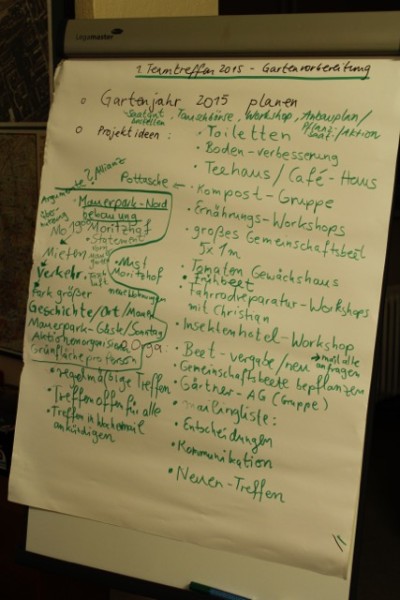 legamaster
1. Teamtreffen 2015 - Gartenvorbereitung
o Gartenjahr 2015 planen
Saatgut bestellen, Tauschbörse, Workshop, Anbauplan/
Pflanz-Aktion
o Projektideen:
• Toiletten
• Boden-verbesserung
• Teehaus/Café-Haus
Pottasche
• Kompost-Gruppe
• Ernährungs-Workshops
• großes Gemeinschaftsbeet
5x1m
• Tomaten Gewächshaus
• Frühbeet
• Fahrradreparatur-Workshops
mit Christian
• Insektenhotel-Workshop
• Beet-vergabe/neu → anfragen
• Gemeinschaftsbeete bepflanzen
• Gärtner-AG (Gruppe)
• Mailingliste:
• Entscheidungen
• Kommunikation
• Neuen-Treffen
Argumente? Allianz
• Mauerpark-Nord
bebauung
Moritzhof
• Statement
Mieten
• Mist
Moritzhof
Verkehr
Park größer
Geschichte/Ort/Mauer
Mauerpark-Gäste/Sonntag
Grünfläche pro Person
Orga:
• regelmäßige Treffen
• Treffen offen für alle
• Treffen in Wochenmail
ankündigen